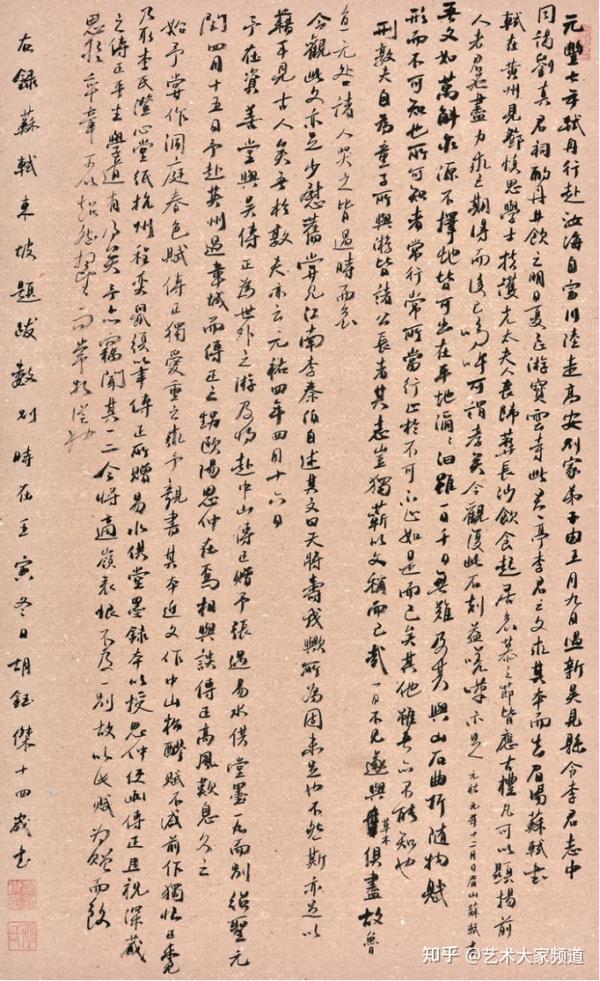 元豐七年軾舟行赴汝海自富川陸走高安別家弟子由五月九日過新吳見縣令李君志中
同謁劉真君祠酌丹井飲之明日夏至游寶雲寺此君亭李君之文求其本而去眉陽蘇軾書
軾在黃州見鄧慎思學士扶護先太夫人喪歸葬長沙飲食起居哀慕之節皆應古禮凡可以顯揚前
人者君盡力求之期得而後已嗚呼可謂孝矣今觀復此石刻益嗟嘆不足 元祐元年十二月日眉山蘇軾書
吾文如萬斛泉源不擇地皆可出在平地滔滔汩雖一日千里無難及其與山石曲折隨物賦
形而不可知也所可知者常行常所當行止於不可不止如是而已矣其他雖吾亦不能知也
邢敦夫自為童子所與游皆諸公長者其志豈獨蘄以文稱而已哉一日不見遂與草木俱盡故魯
直無咎諸人哭之皆過時而哀
今觀此文亦足少慰舊嘗見江南李泰伯自述其文曰天將壽我歟所為固未足也不然斯亦足以
藉手見古人矣吾於敦夫亦云元祐四年四月十六日
予在資善堂與吳傳正為世外之游及將赴中山傳正贈予張遇易水供堂墨一丸而別紹聖元
閏四月十五日予赴英州過韋城而傳正之甥歐陽思仲在焉相與談傳正高風歎息久之
始予嘗作洞庭春色賦傳正獨愛重之求予親書其本近又作中山松醪賦不減前作獨恨正未見
乃取李氏澄心堂紙杭州程奕鼠須筆傳正所贈易水供堂墨錄本以授思仲使面傳正且祝深藏
之傳正平生學道有得矣予亦竊聞其一二今將適嶺表恨不得一別故以此賦為贈而致
思於卒章可以超然想望而常相從也
右錄蘇軾東坡題跋數則時在壬寅冬日胡鈺傑十四歲書
知乎 @艺术大家频道